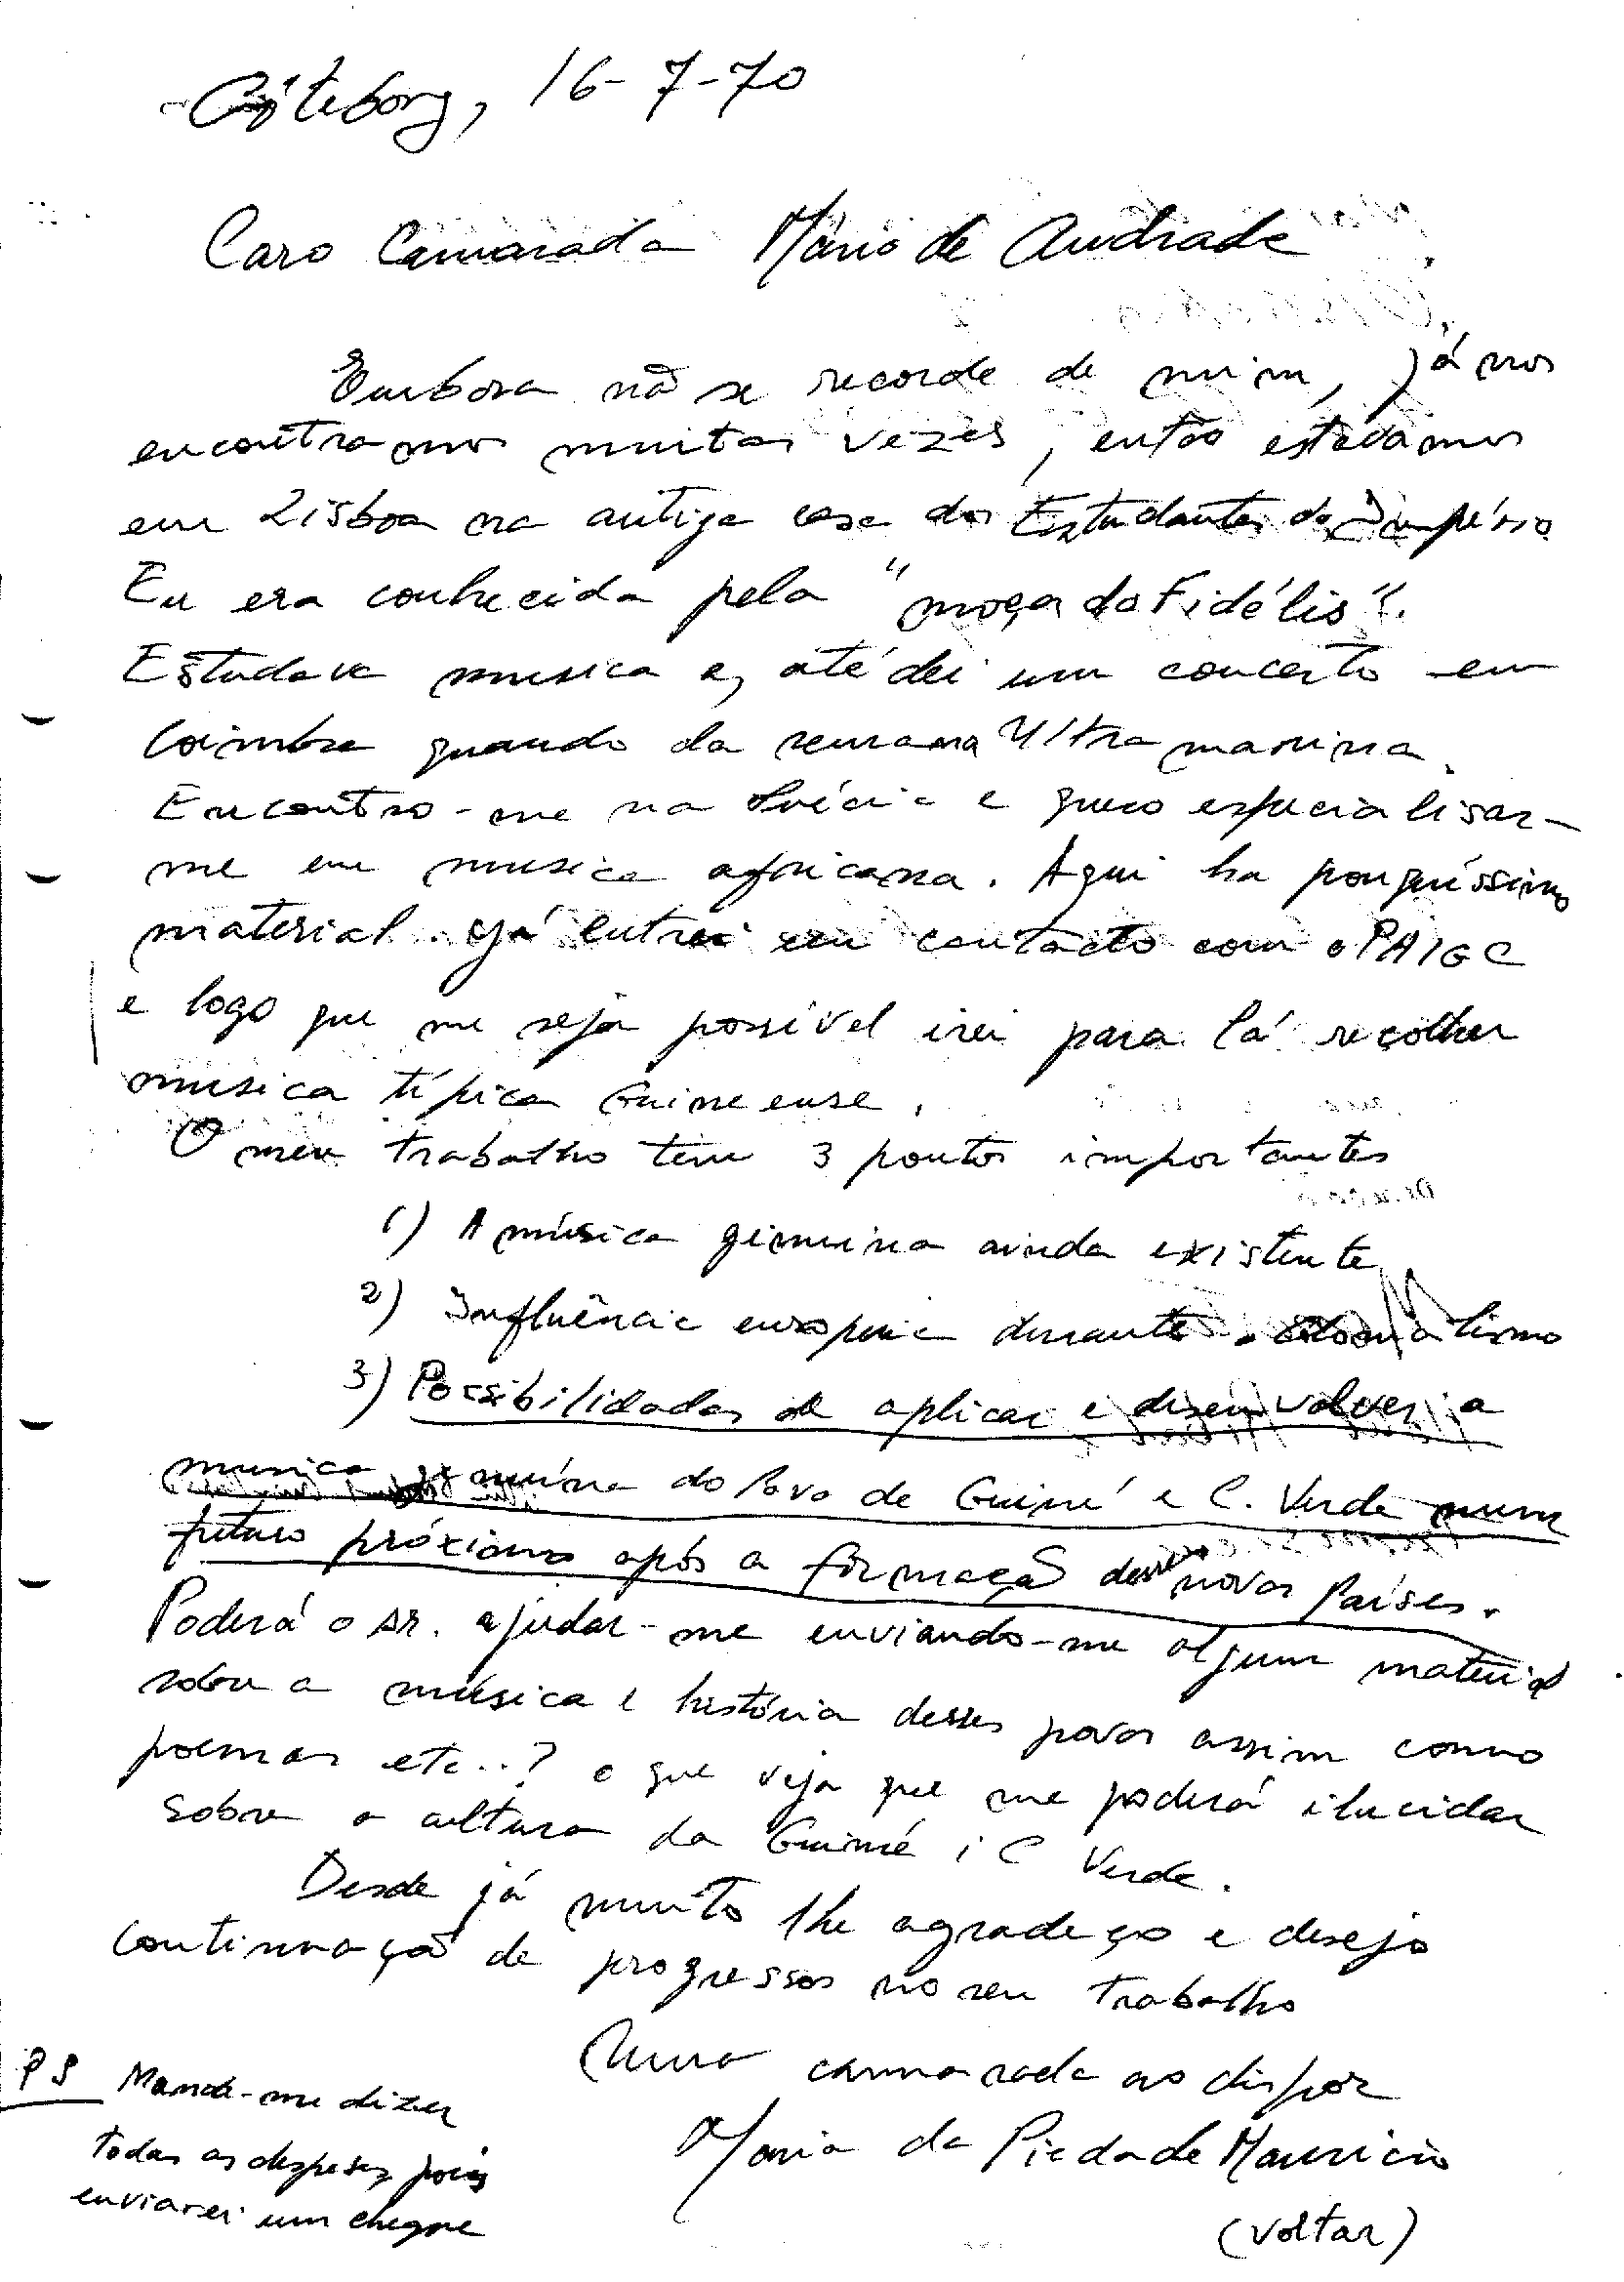 Göteborg, 16-7-70
Caro Camarada Mário de Andrade
Embora não se recorde de mim, já nos
encontramos muitas vezes, então estávamos
em Lisboa na antiga casa dos Estudantes do Império
Eu era conhecida pela "moça do Fidélis".
Estudava musica e, até dei um concerto em
Coimbra quando da semana Ultramarina.
Encontro-me na Suécia e quero especialisar-
me em musica africana. Aqui ha pouquíssimo
material. Já entrei em contacto com o PAIGC
e logo que me seja possível irei para lá recolher
musica típica Guineense.
O meu trabalho tem 3 pontos importantes
1) A música genuina ainda existente
2) Influência europeia durante o colonialismo
3) Possibilidades de aplicar e desenvolver a
musica genuína do Povo de Guiné e C. Verde num
futuro próximo após a formação desses novos Países.
Poderá o sr. ajudar-me enviando-me algum material
sobre a música e história desses povos assim como
poemas etc..? o que veja que me poderá ilucidar
sobre a cultura da Guiné i C Verde.
Desde já muito lhe agradeço e desejo
continuação de progressos no seu trabalho
Uma camarada ao dispor
Maria da Piedade Mauricio
(voltar)
PS Mande-me dizer
todas as despesas pois
enviarei um cheque